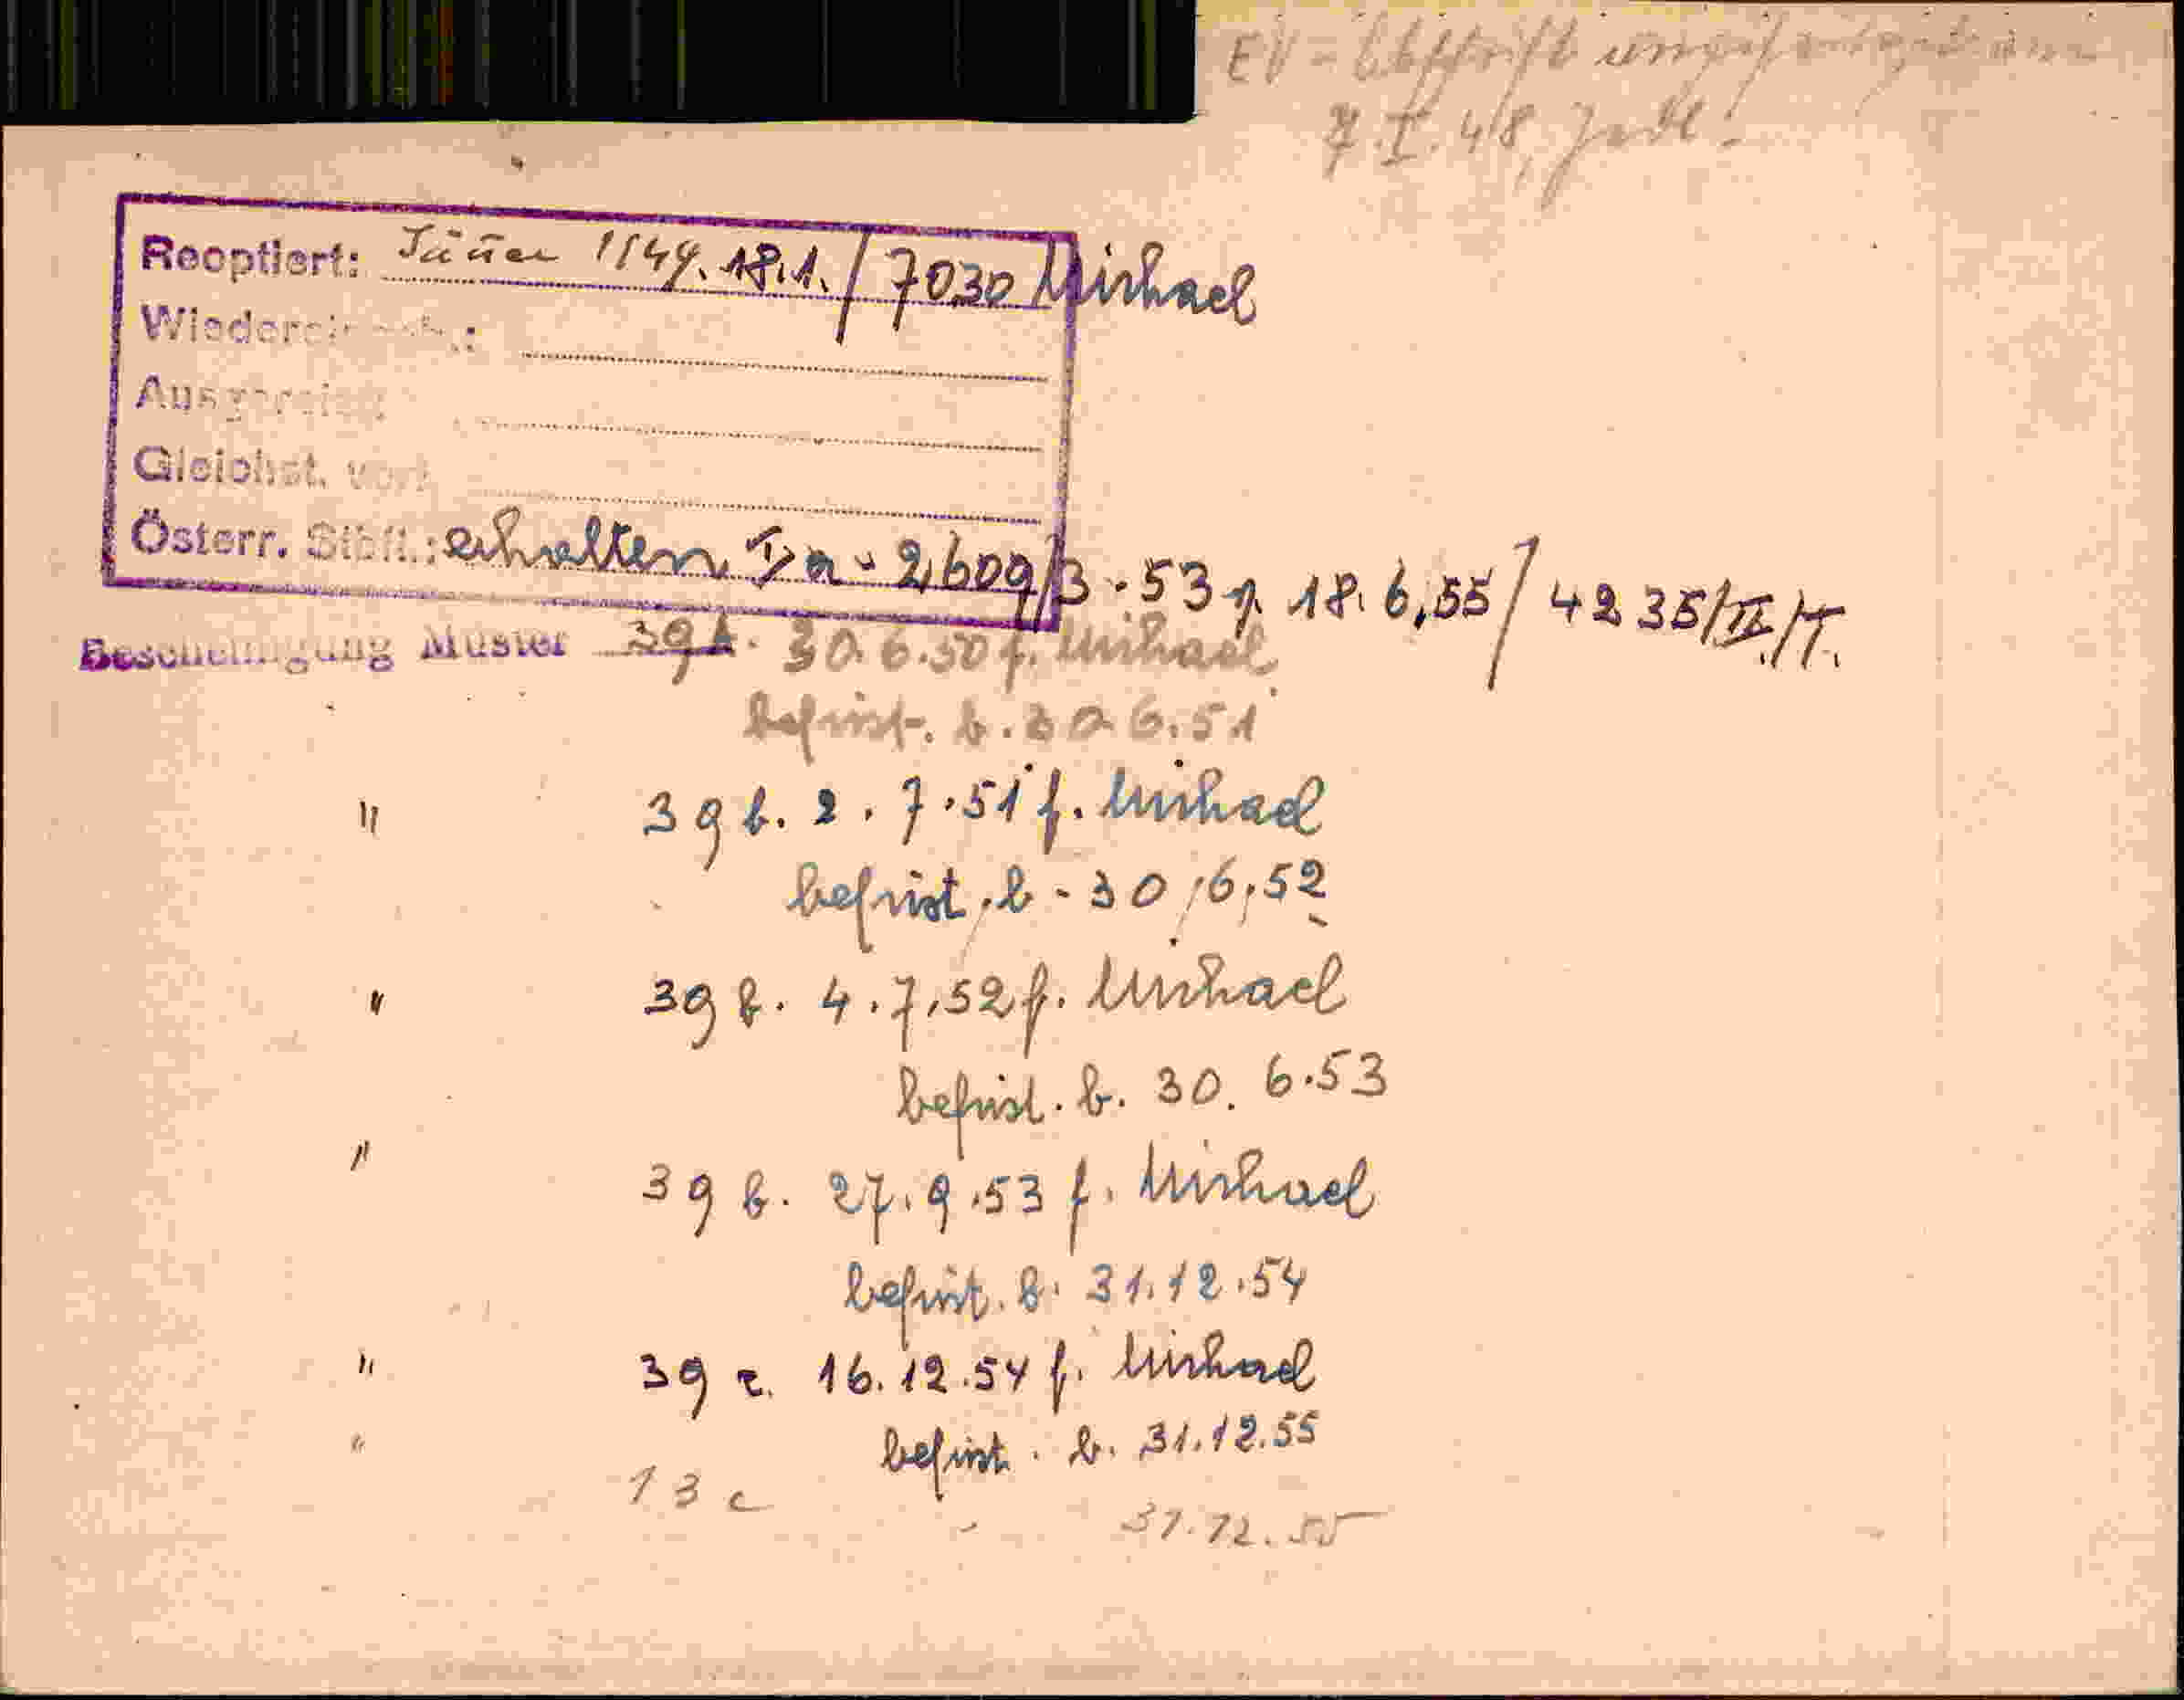 EV = Abschrift
7.I.48,
Reoptiert: Jänner 1949. 18.1./7030 Michael
Gleichst.
Österr. Stbft.: erhalten, Ia - 2,609/3.53 v. 18.6,55/4235/II./T.
Bescheinigung Muster 39b. 30.6.50 f. Michael
befrist. b. 30.6.51
" 39b. 2.7.51 f. Michael
befrist. b. 30.6.52
" 39b. 4.7.52 f. Michael
befrist. b. 30.6.53
" 39b. 27.9.53 f. Michael
befrist. b. 31.12.54
" 39c. 16.12.54 f. Michael
" befrist. b. 31.12.55
13c 31.12.55